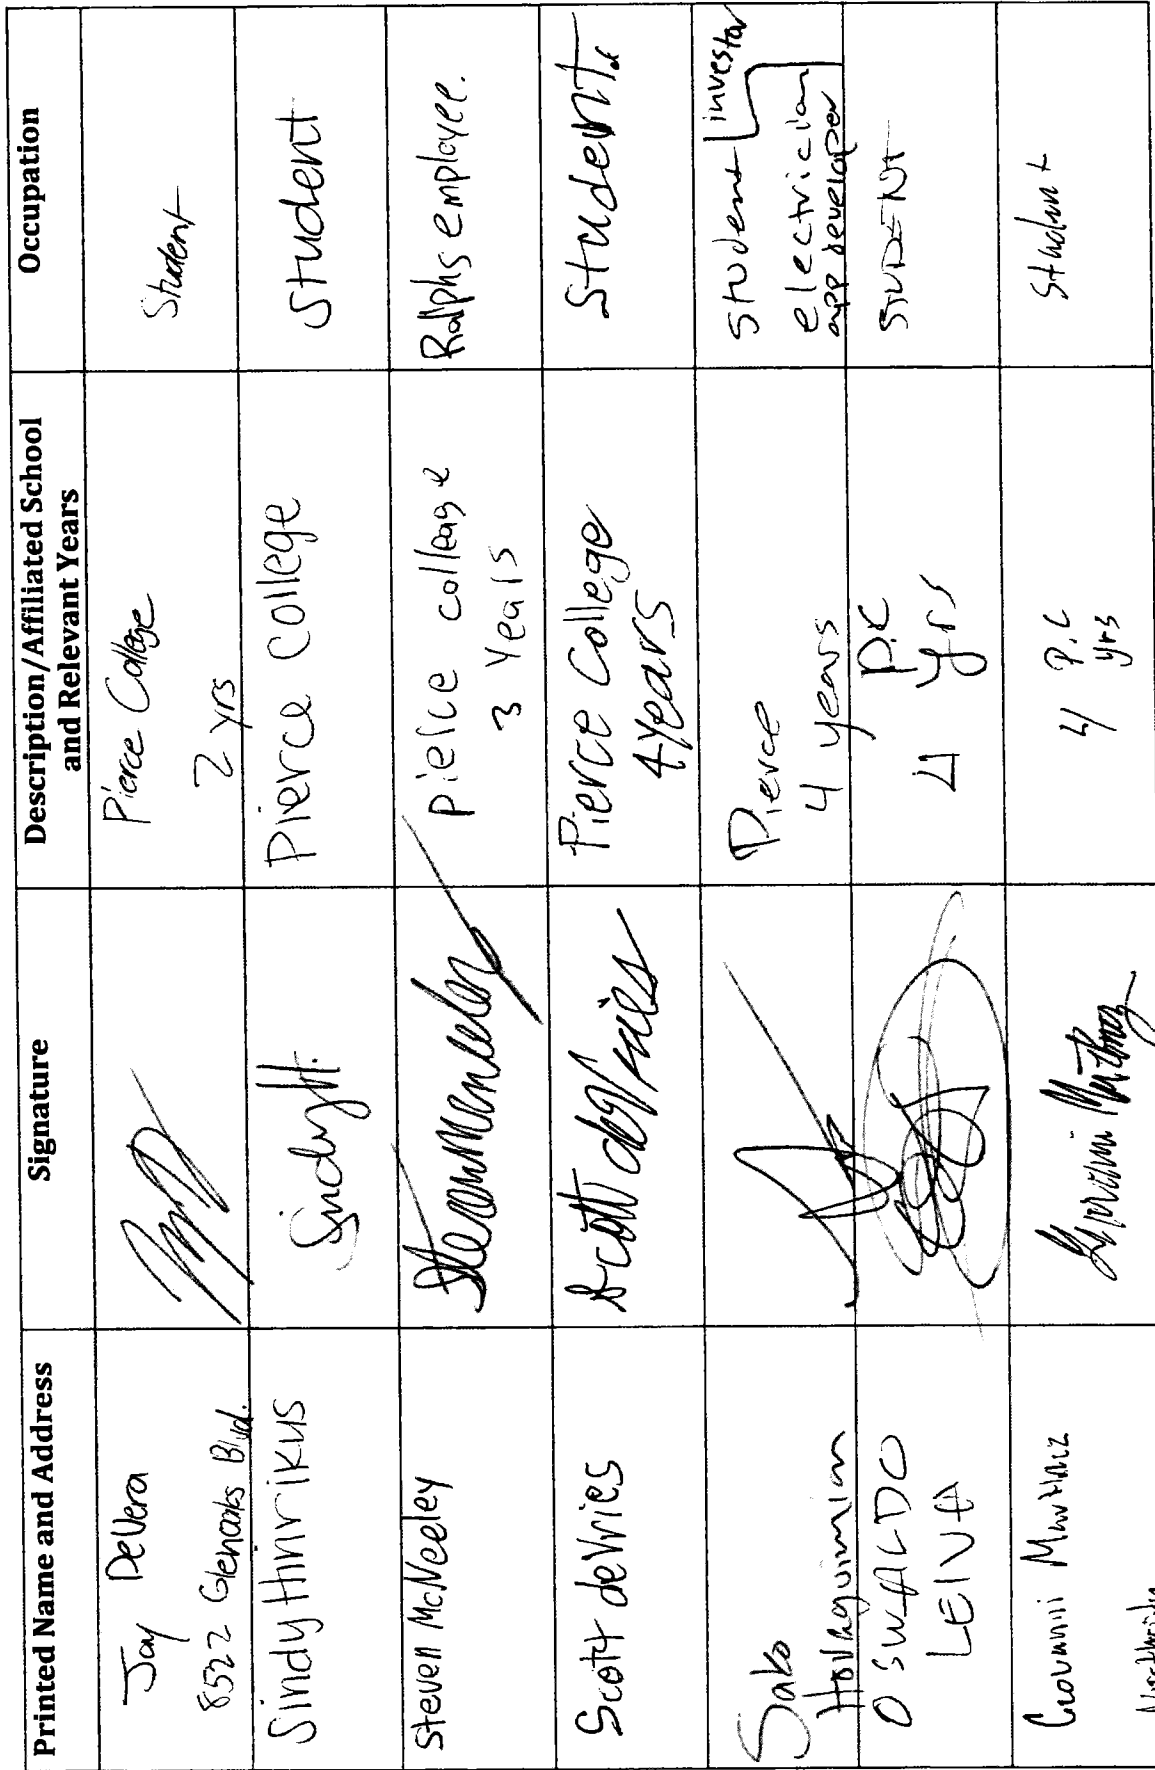 Printed Name and Address
Signature
Description/Affiliated School
and Relevant Years
Occupation
Jay DeVera
8522 Glenoaks Blvd.
Pierce College
2 yrs
Student
Sindy Hinrikus
Sindy H.
Pierce College
Student
Steven McNeeley
pierce colleage
3 Years
Ralphs employee.
Scott deVries
Scott deVries
Pierce College
4 years
Student
Sako
Pierce
4 years
Student investor
electrician
app developer
OSWALDO
LEIVA
P.C
4 yrs
STUDENT
Giovanni
P.C
4 yrs
Student